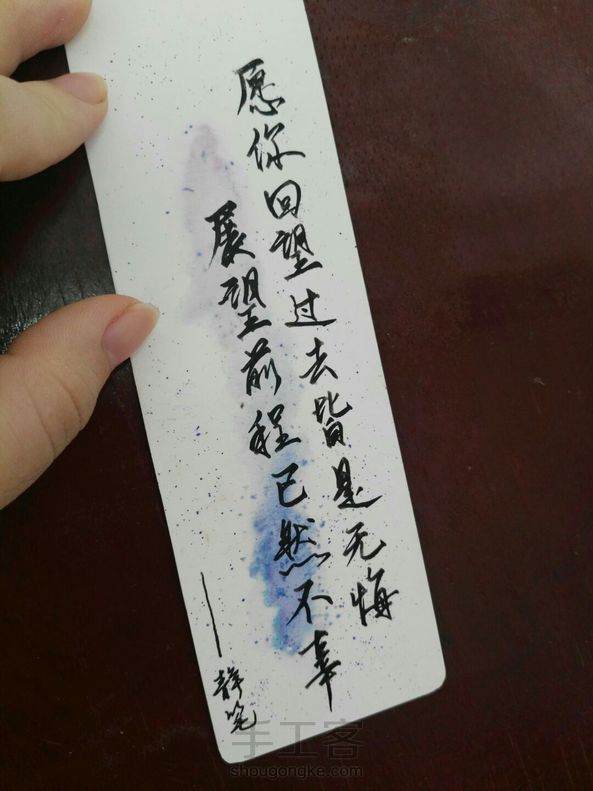 愿你回望过去皆是无悔
展望前程已然不辜
——静笔
手工客
shougongke.com